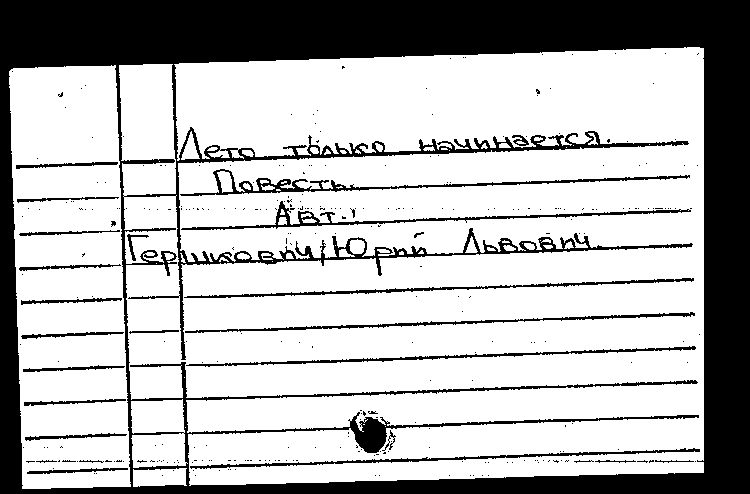 Лето только начинается.
Повесть.
Авт.:
Гершкович, Юрий Львович.